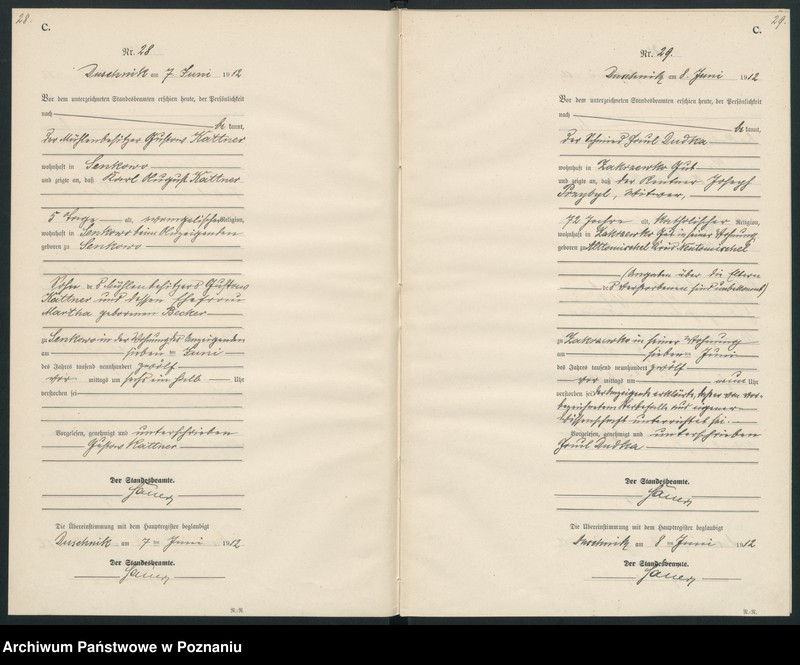 28.
C.
Nr. 28
Duschnik am 7. Juni 1912
Vor dem unterzeichneten Standesbeamten erschien heute, der Persönlichkeit
nach be kannt,
der Mühlenbesitzer Gustav Kattner
wohnhaft in Senkowo
und zeigte an, daß Karl August Kattner
5 Tage alt, evangelischer Religion,
wohnhaft in Senkowo beim Anzeigenden
geboren zu Senkowo
Sohn des Mühlenbesitzers Gustav
Kattner und dessen Ehefrau
Martha geborenen Becker
zu Senkowo in der Wohnung des Anzeigenden
am sieben ten Juni
des Jahres tausend neunhundert zwölf
vor mittags um sechs ein halb Uhr
verstorben sei
Vorgelesen, genehmigt und unterschrieben
Gustav Kattner
Der Standesbeamte.
Die Übereinstimmung mit dem Hauptregister beglaubigt
Duschnik am 7 ten Juni 1912
Der Standesbeamte.
R.-R.
29.
C.
Nr. 29.
Duschnik am 8. Juni 1912
Vor dem unterzeichneten Standesbeamten erschien heute, der Persönlichkeit
nach be kannt,
der Schmied Paul Dudka
wohnhaft in Zakrzewko Gut
und zeigte an, daß der Rentner Joseph
Przybyl, Witwer,
72 Jahre alt, katholischer Religion,
wohnhaft in Zakrzewko Gut in seiner Wohnung
geboren zu Alttomischel Kreis Neutomischel
(Angaben über die Eltern
des Verstorbenen sind unbekannt)
zu Zakrzewko in seiner Wohnung
am sieben ten Juni
des Jahres tausend neunhundert zwölf
vor mittags um neun Uhr
verstorben sei. Der Anzeigende erklärte, daß er von vor-
bezeichnetem Sterbefalle aus eigener
Wissenschaft unterrichtet sei.
Vorgelesen, genehmigt und unterschrieben
Paul Dudka
Der Standesbeamte.
Die Übereinstimmung mit dem Hauptregister beglaubigt
Duschnik am 8 ten Juni 1912
Der Standesbeamte.
R.-R.
Archiwum Państwowe w Poznaniu